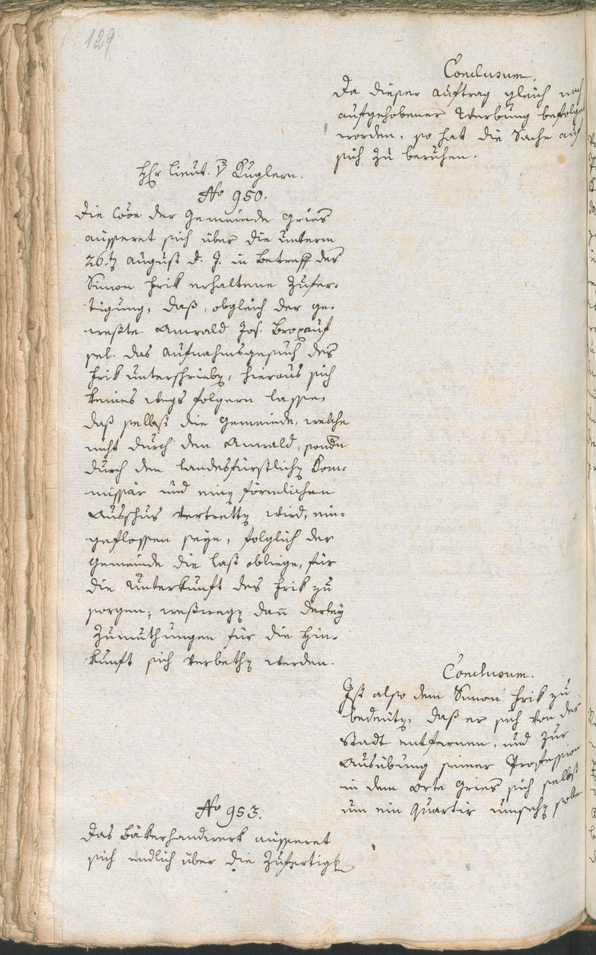 129
Conclusum.
Da dieser Auftrag gleich nach
aufgehobener Werbung befolgt
worden, so hat die Sache auf
sich zu beruhen.
Hr Lieut. v Kuglern.
No 950.
Die Cöoe der Gemeinde Gries
äusseret sich über die unterm
26.ten August d. J. in Betreff des
Simon Hrik erhaltene Zufer-
tigung, daß, obgleich der ge-
weßte Anwald Jos:
sel. das Aufnahmsgesuch des
Hrik unterschrieben, hieraus sich
keines wegs folgern lasse,
daß selbst die Gemeinde, welche
nicht durch den Anwald, sondern
durch den landesfürstlichen Kom-
missär und einen förmlichen
Ausschus vertretten wird, ein-
geflossen seye, folglich der
Gemeinde die Last obliege, für
die Unterkunft des Hrik zu
sorgen, weßwegen dann derley
Zumuthungen für die Hin-
kunft sich verbethen werden.
Conclusum.
Ist also dem Simon Hrik zu
bedeuten, daß er sich von der
Stadt entfernen, und zur
Ausübung seiner Profession
in dem Orte Gries sich selbst
um ein Quartir umsehen solle
No 953.
Das Bäkerhandwerk äusseret
sich endlich über die Zufertigung